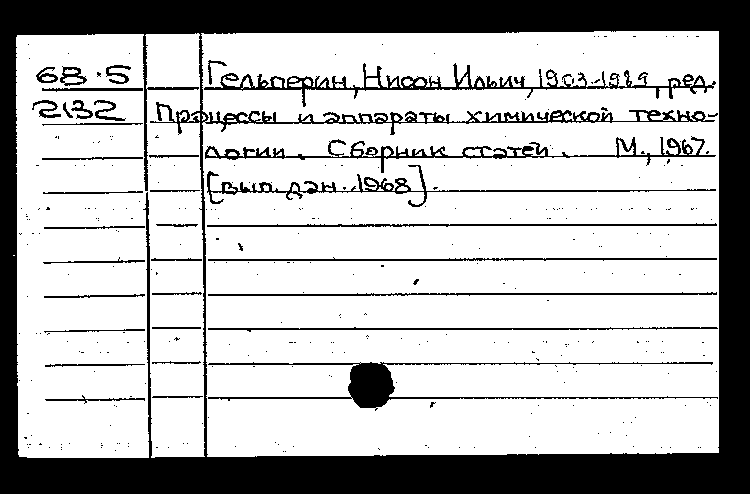 68.5 Гельперин, Нисон Ильич, 1903-1989, ред.
2132 Процессы и аппараты химической техно-
логии. Сборник статей. М., 1967.
[вып. дан. 1968].